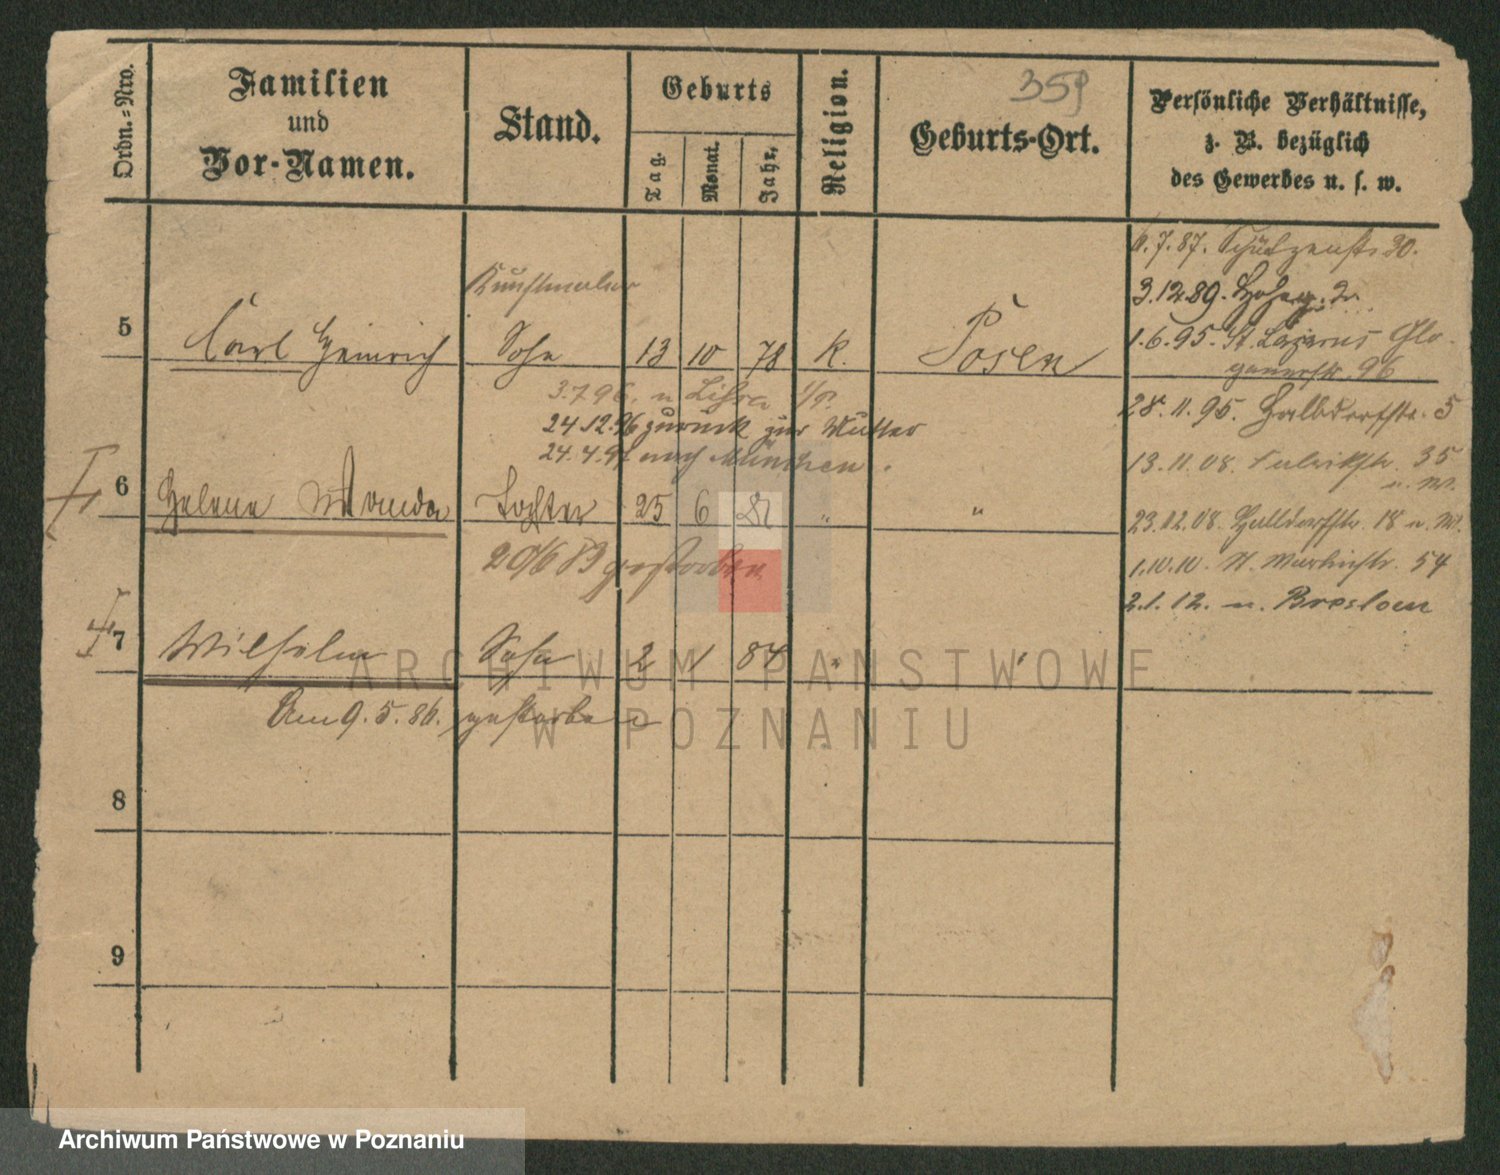 359
Ordn.=Nro.
Familien
und
Vor-Namen.
Stand.
Geburts
Tag.
Monat.
Jahr.
Religion.
Geburts-Ort.
Persönliche Verhältnisse,
z. B. bezüglich
des Gewerbes u. s. w.
Kunstmaler
5 Carl Heinrich Sohn 13 10 78 k. Posen
3.7.96. n. Lissa i/P.
24.12.96 zurück zur Mutter
24.4.97 nach München.
6 Helene Wanda Tochter 25 6 81 " "
20/6 83 gestorben
7 Wilhelm Sohn 2 1 84 " "
Am 9.5.86. gestorben
8
9
7.87. Schützenstr 30.
3.12.89. 2.
1.6.95. St. Lazarus Glo-
gauerstr. 96
28.11.95. Halbdorfstr. 5
13.11.08. 35
n. W.
23.12.08. Halbdorfstr. 18 n. W.
1.10.10. St. Martinstr. 54
2.1.12. n. Breslau
ARCHIWUM PAŃSTWOWE
W POZNANIU
Archiwum Państwowe w Poznaniu